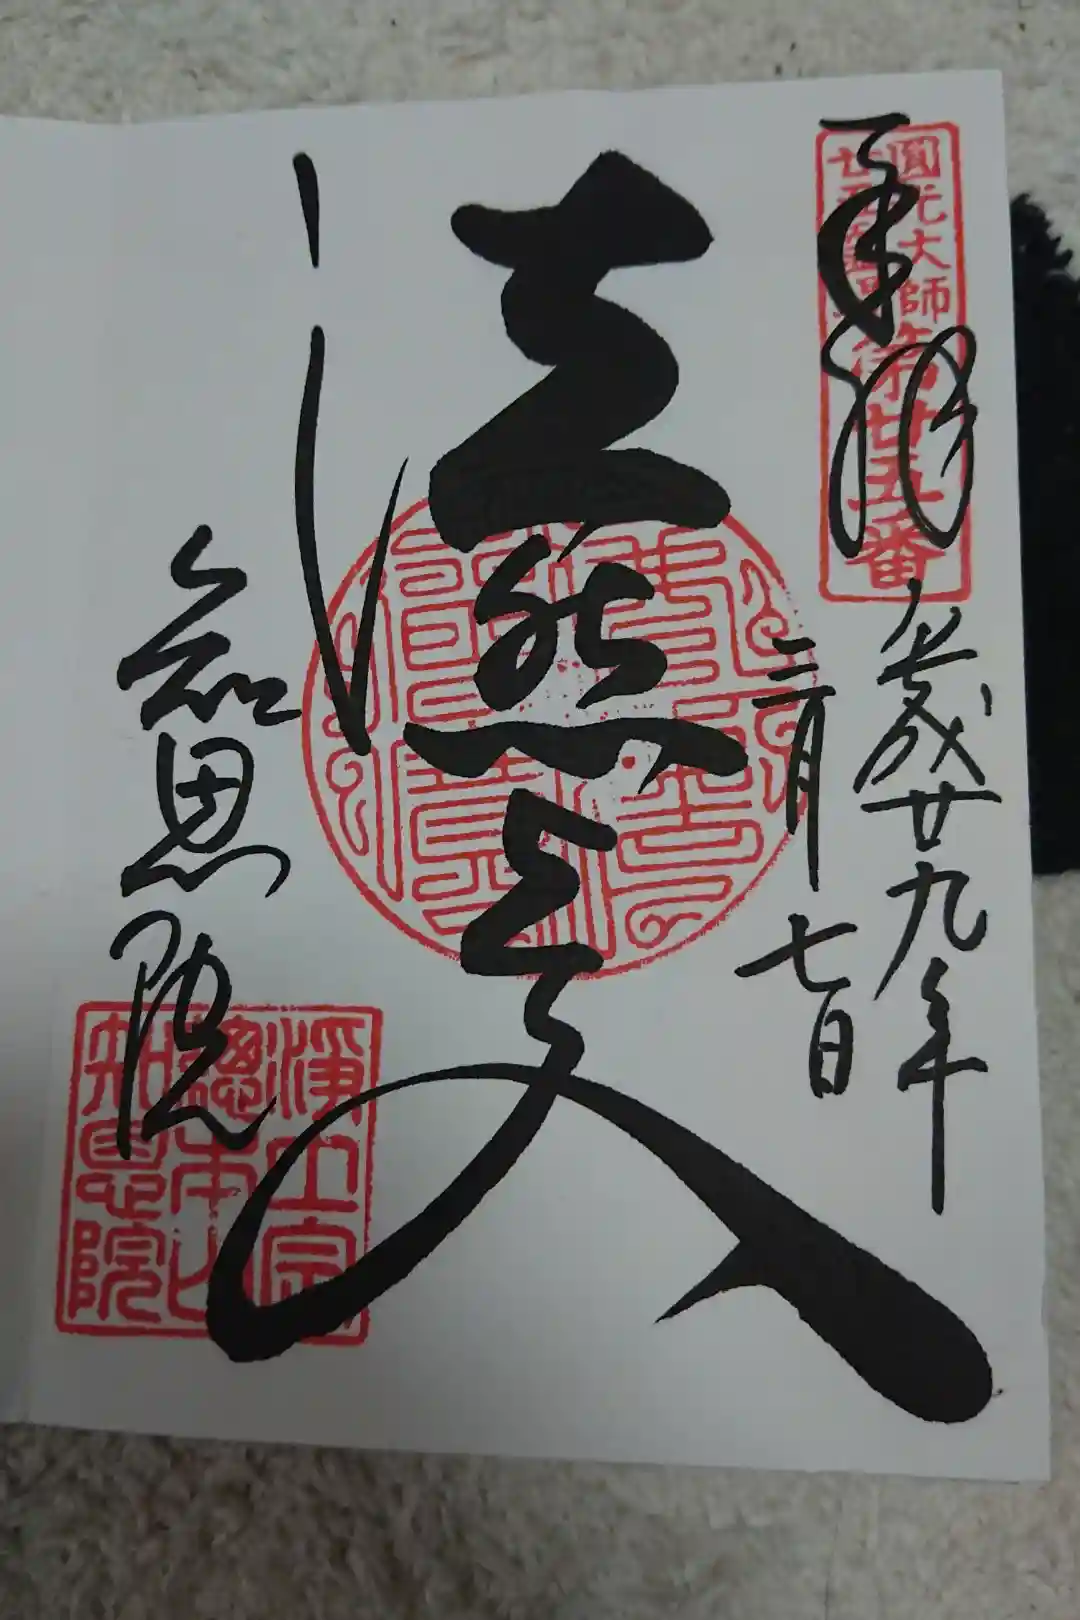 奉拝
圓光大師
廿五霊場
第廿五番
平成廿九年
二月七日
法然上人
知恩院
浄土宗
總本山
知恩院